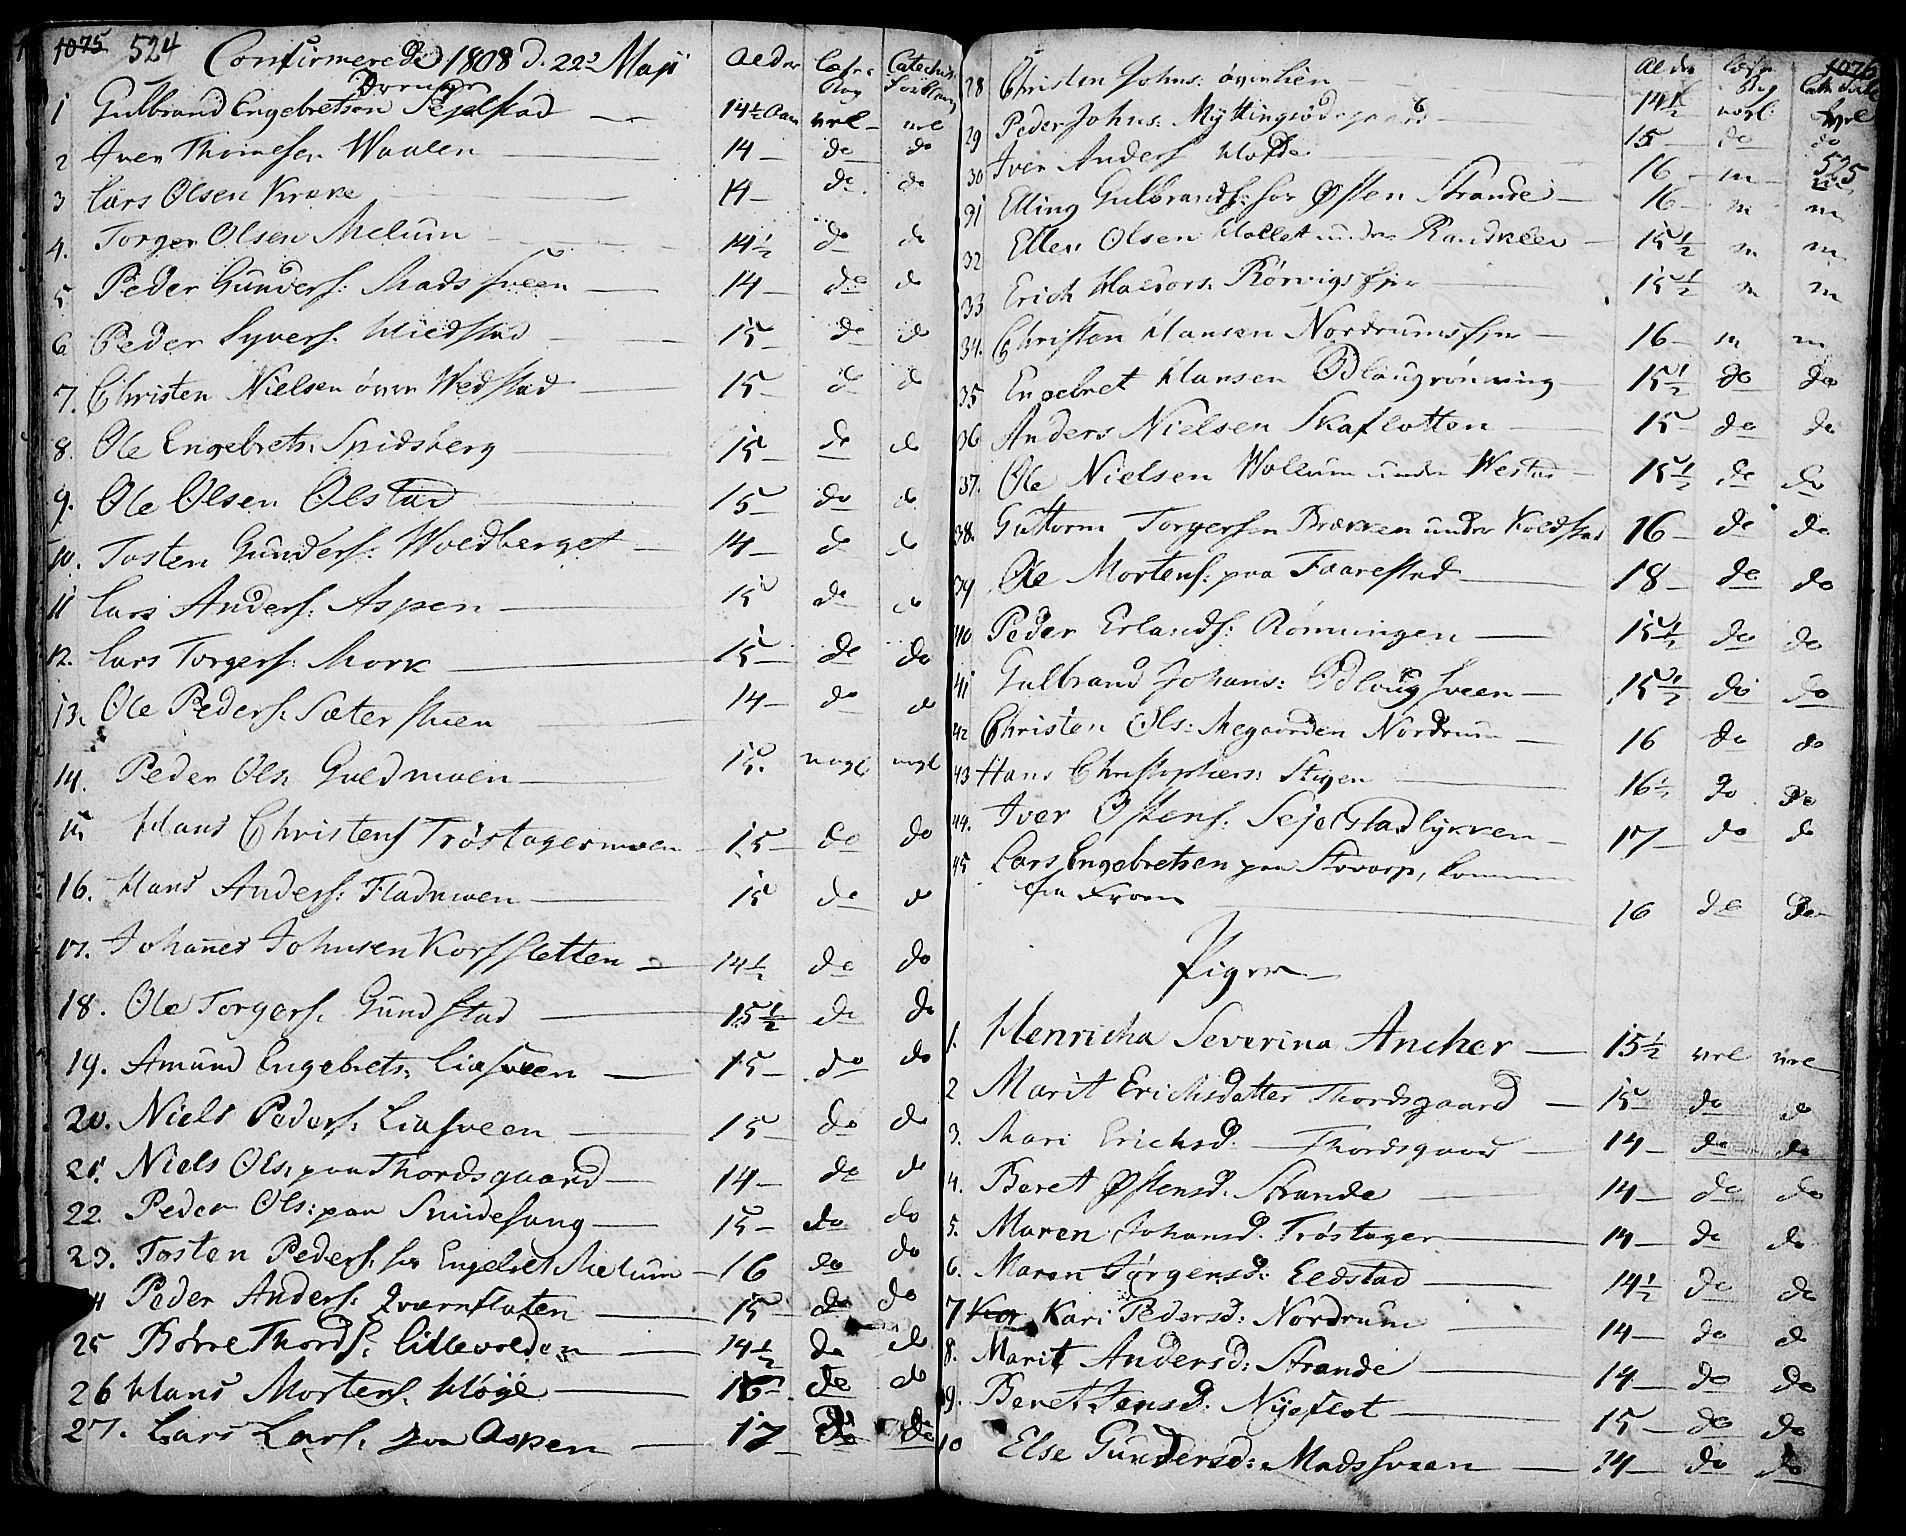 1075 524 Confirmerede 1808 d. 22de Maji
Drenge
Alder Læse- Catechis.
1 Gulbrand Engebretsen Sejelstad 14½ Aar vel vel
2 Iver Thomesen Waalen 14 do do
3 Lars Olsen Kreke 14 do do
4. Torger Olsen Melum 14½ do do
5 Peder Gunders: Madssveen 14 do do
6 Peder Syvers. Miedstad 15 do do
7. Christen Nielsen øvre Wedstad 15 do do
8. Ole Engebrets: Snidsberg 15 do do
9. Ole Olsen Olstad 15 do do
10. Tosten Gunders: Woldberget 14 do do
11 Lars Anders: Aspen 15 do do
12. Lars Torgers: Mork 15 do do
13. Ole Peders: Sæterstuen 14 do do
14. Peder Ols: Guldmoen 15. nogl nogl
15 Hans Christens Trøstagermoen 15 do do
16. Hans Anders: Fladmoen 15 do do
17. Johannes Johnsen Korssletten 14½ do do
18. Ole Torgers. Gundstad 15½ do do
19. Amund Engebrets: Liasveen 15 do do
20. Niels Peders: Liasveen 15 do do
21. Niels Ols: paa Thordsgaard 14 do do
22. Peder Ols: paa Smidesang 15 do do
23. Tosten Peders: hos Engebret Melum 16 do do
24 Peder Anders: Qvernflaten 15 do do
25 Børre Thords: Lillevolden 14½ do do
26 Hans Mortens. Høye 15 do do
27. Lars Lars: paa Aspen 17 do do
Alder 1076
28 Christen Johns: øvre Lien 14½ nogl: vel
29 Peder Johns: Myttingsødegaard 15 do do
30 Iver Anders 16 m 525
31 Elling Gulbrands: hos Østen Strande 16 m m
32 Ellev Olsen under Randklev 15½ m m
33 Erich Haldors: 15½ m m
34. Christen Hansen 16 m m
35 Engebret Hansen Odlaugrønning 15½ do do
36 Anders Nielsen Skaflotten 15 do do
37. Ole Nielsen Wollum under Westad 15½ do do
38. Guttorm Torgersen Brækken under Koldstad 16 do do
39 Ole Mortens: paa Faarestad 18 do do
40 Peder Erlands: Rønningen 15½ do do
41 Gulbrand Johans: Odlaugsveen 15½ do do
42 Christen Ols: Megaarden Nordrum 16 do do
43 Hans Christophers: Stigen 16½ do do
44. Iver Østens: Sejelstadlykken 17 do do
45 Lars Engebretsen paa
fra Froen 16 do do
Piger
1. Henricha Severina Ancher 15½ vel vel
2 Marit Erichsdatter Thordsgaard 15 do do
3. Mari Erichsd. Thordsgaard 14 do do
4. Beret Østensd. Strande 14 do do
5. Maren Johansd. Trøstager 14 do do
6. Maren Jørgensd: Eldstad 14½ do do
7 Kar Kari Pedersd: Nordrum 14 do do
8. Marit Andersd: Strande 14 do do
9. Beret Jensd: Nyeflot 15 do do
10 Else Gundersd: Madssveen 14 do do